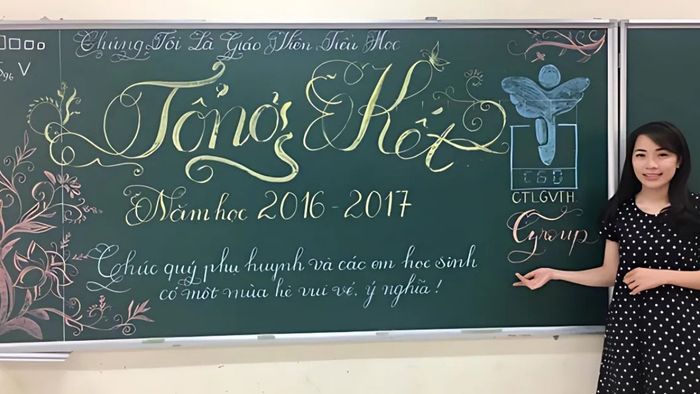 Chúng Tôi Là Giáo Viên Tiểu Học
Tổng Kết
Năm học 2016 - 2017
Chúc quý phụ huynh và các em học sinh
có một mùa hè vui vẻ, ý nghĩa!
CGD
CTLGVTH
Group
V